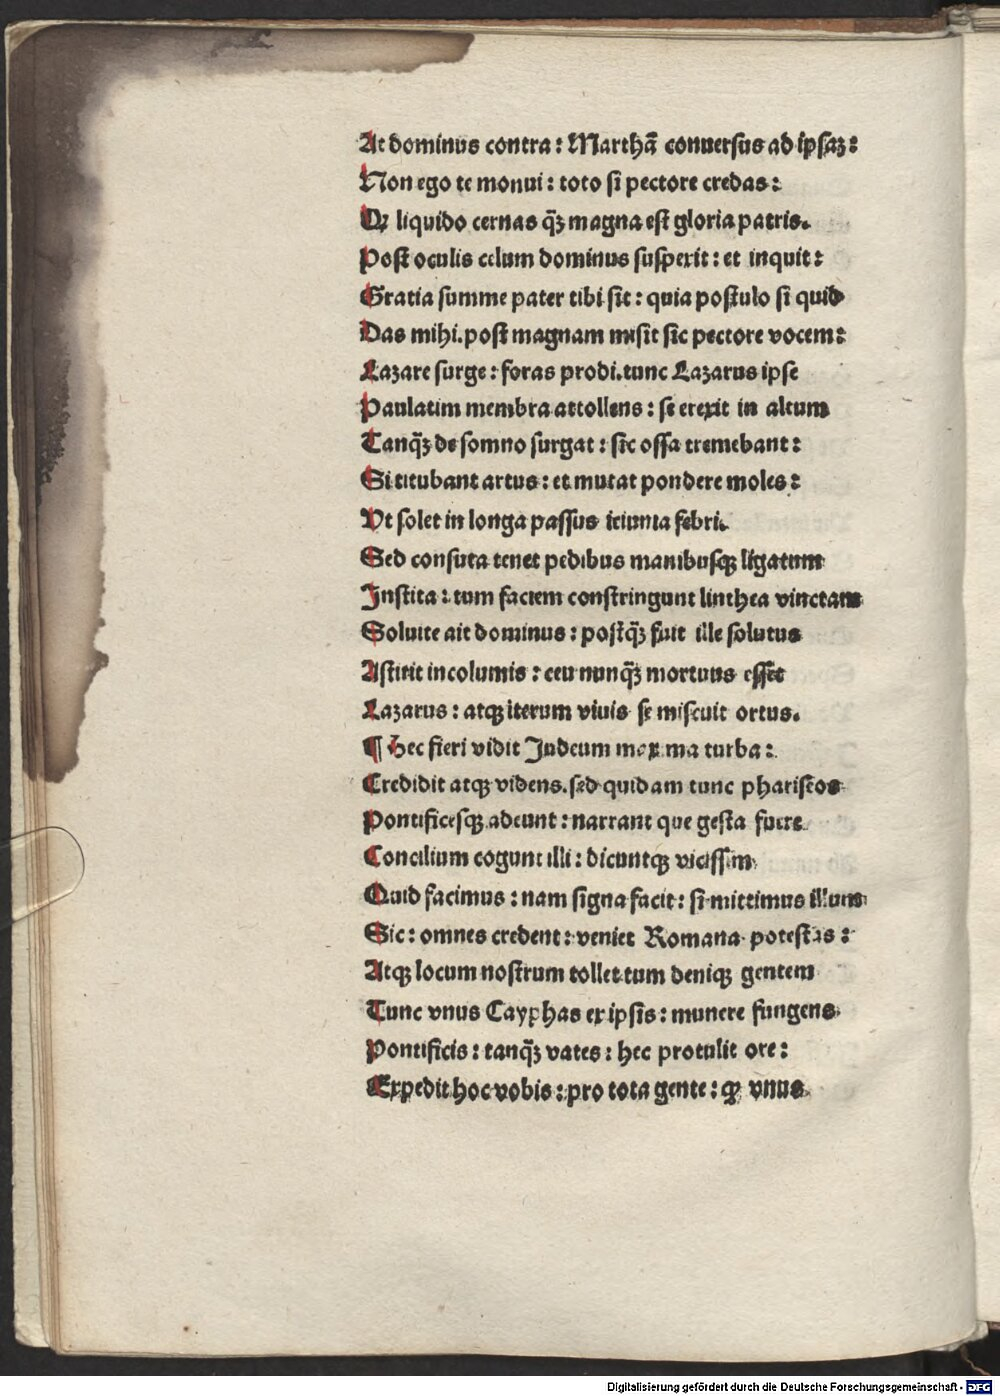 At dominus contra : Marthã conuersus ad ipsaꝫ :
Non ego te monui : toto si pectore credas :
Qꝛ liquido cernas q̃ꝫ magna est gloria patris.
Post oculis celum dominus suspexit : et inquit :
Gratia summe pater tibi sit : quia postulo si quid
Das mihi. post magnam misit sic pectore vocem :
Lazare surge : foras prodi. tunc Lazarus ipse
Paulatim membra attollens : se erexit in altum
Tanq̃ꝫ de somno surgat : sic ossa tremebant :
Si titubant artus : et mutat pondere moles :
Vt solet in longa passus ieiunia febri.
Sed consuta tenet pedibus manibusqꝫ ligatum
Instita : tum faciem constringunt linthea vinctam
Soluite ait dominus : postq̃ꝫ fuit ille solutus
Astitit incolumis : ceu nunq̃ꝫ mortuus esset
Lazarus : atqꝫ iterum viuis se miscuit ortus.
¶ Hec fieri vidit Iudeum maxima turba :
Credidit atqꝫ videns. sed quidam tunc phariseos
Pontificesqꝫ adeunt : narrant que gesta fuere
Concilium cogunt illi : dicuntqꝫ vicissim
Quid facimus : nam signa facit : si mittimus illum
Sic : omnes credent : veniet Romana potestas :
Atqꝫ locum nostrum tollet tum deniqꝫ gentem
Tunc vnus Cayphas ex ipsis : munere fungens
Pontificis : tanq̃ꝫ vates : hec protulit ore :
Expedit hoc vobis : pro tota gente : ꝙ vnus
Digitalisierung gefördert durch die Deutsche Forschungsgemeinschaft - DFG